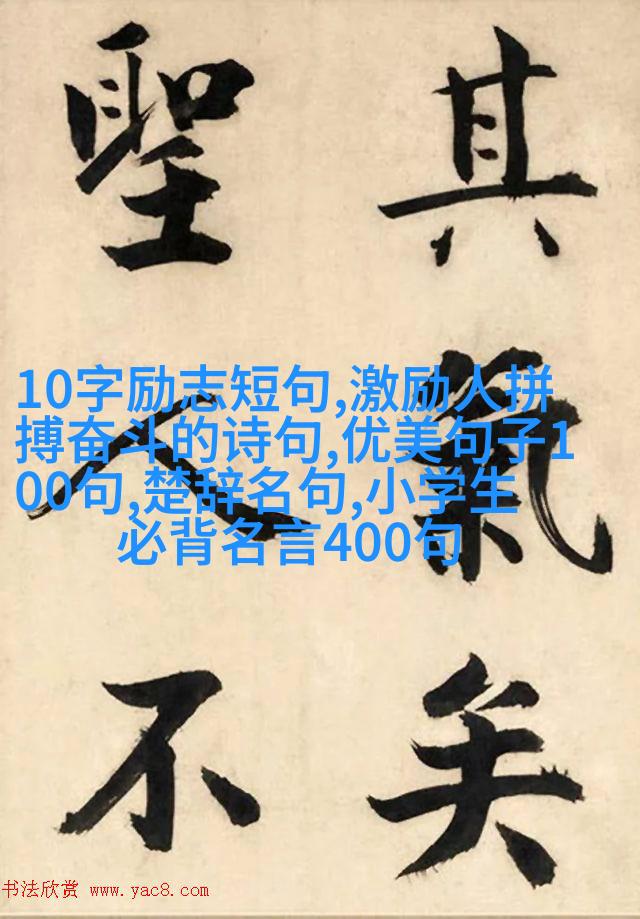 其氣矣
聖人不
10字励志短句,激励人拼
搏奋斗的诗句,优美句子1
00句,楚辞名句,小学生
必背名言400句
书法欣赏 www.yac8.com